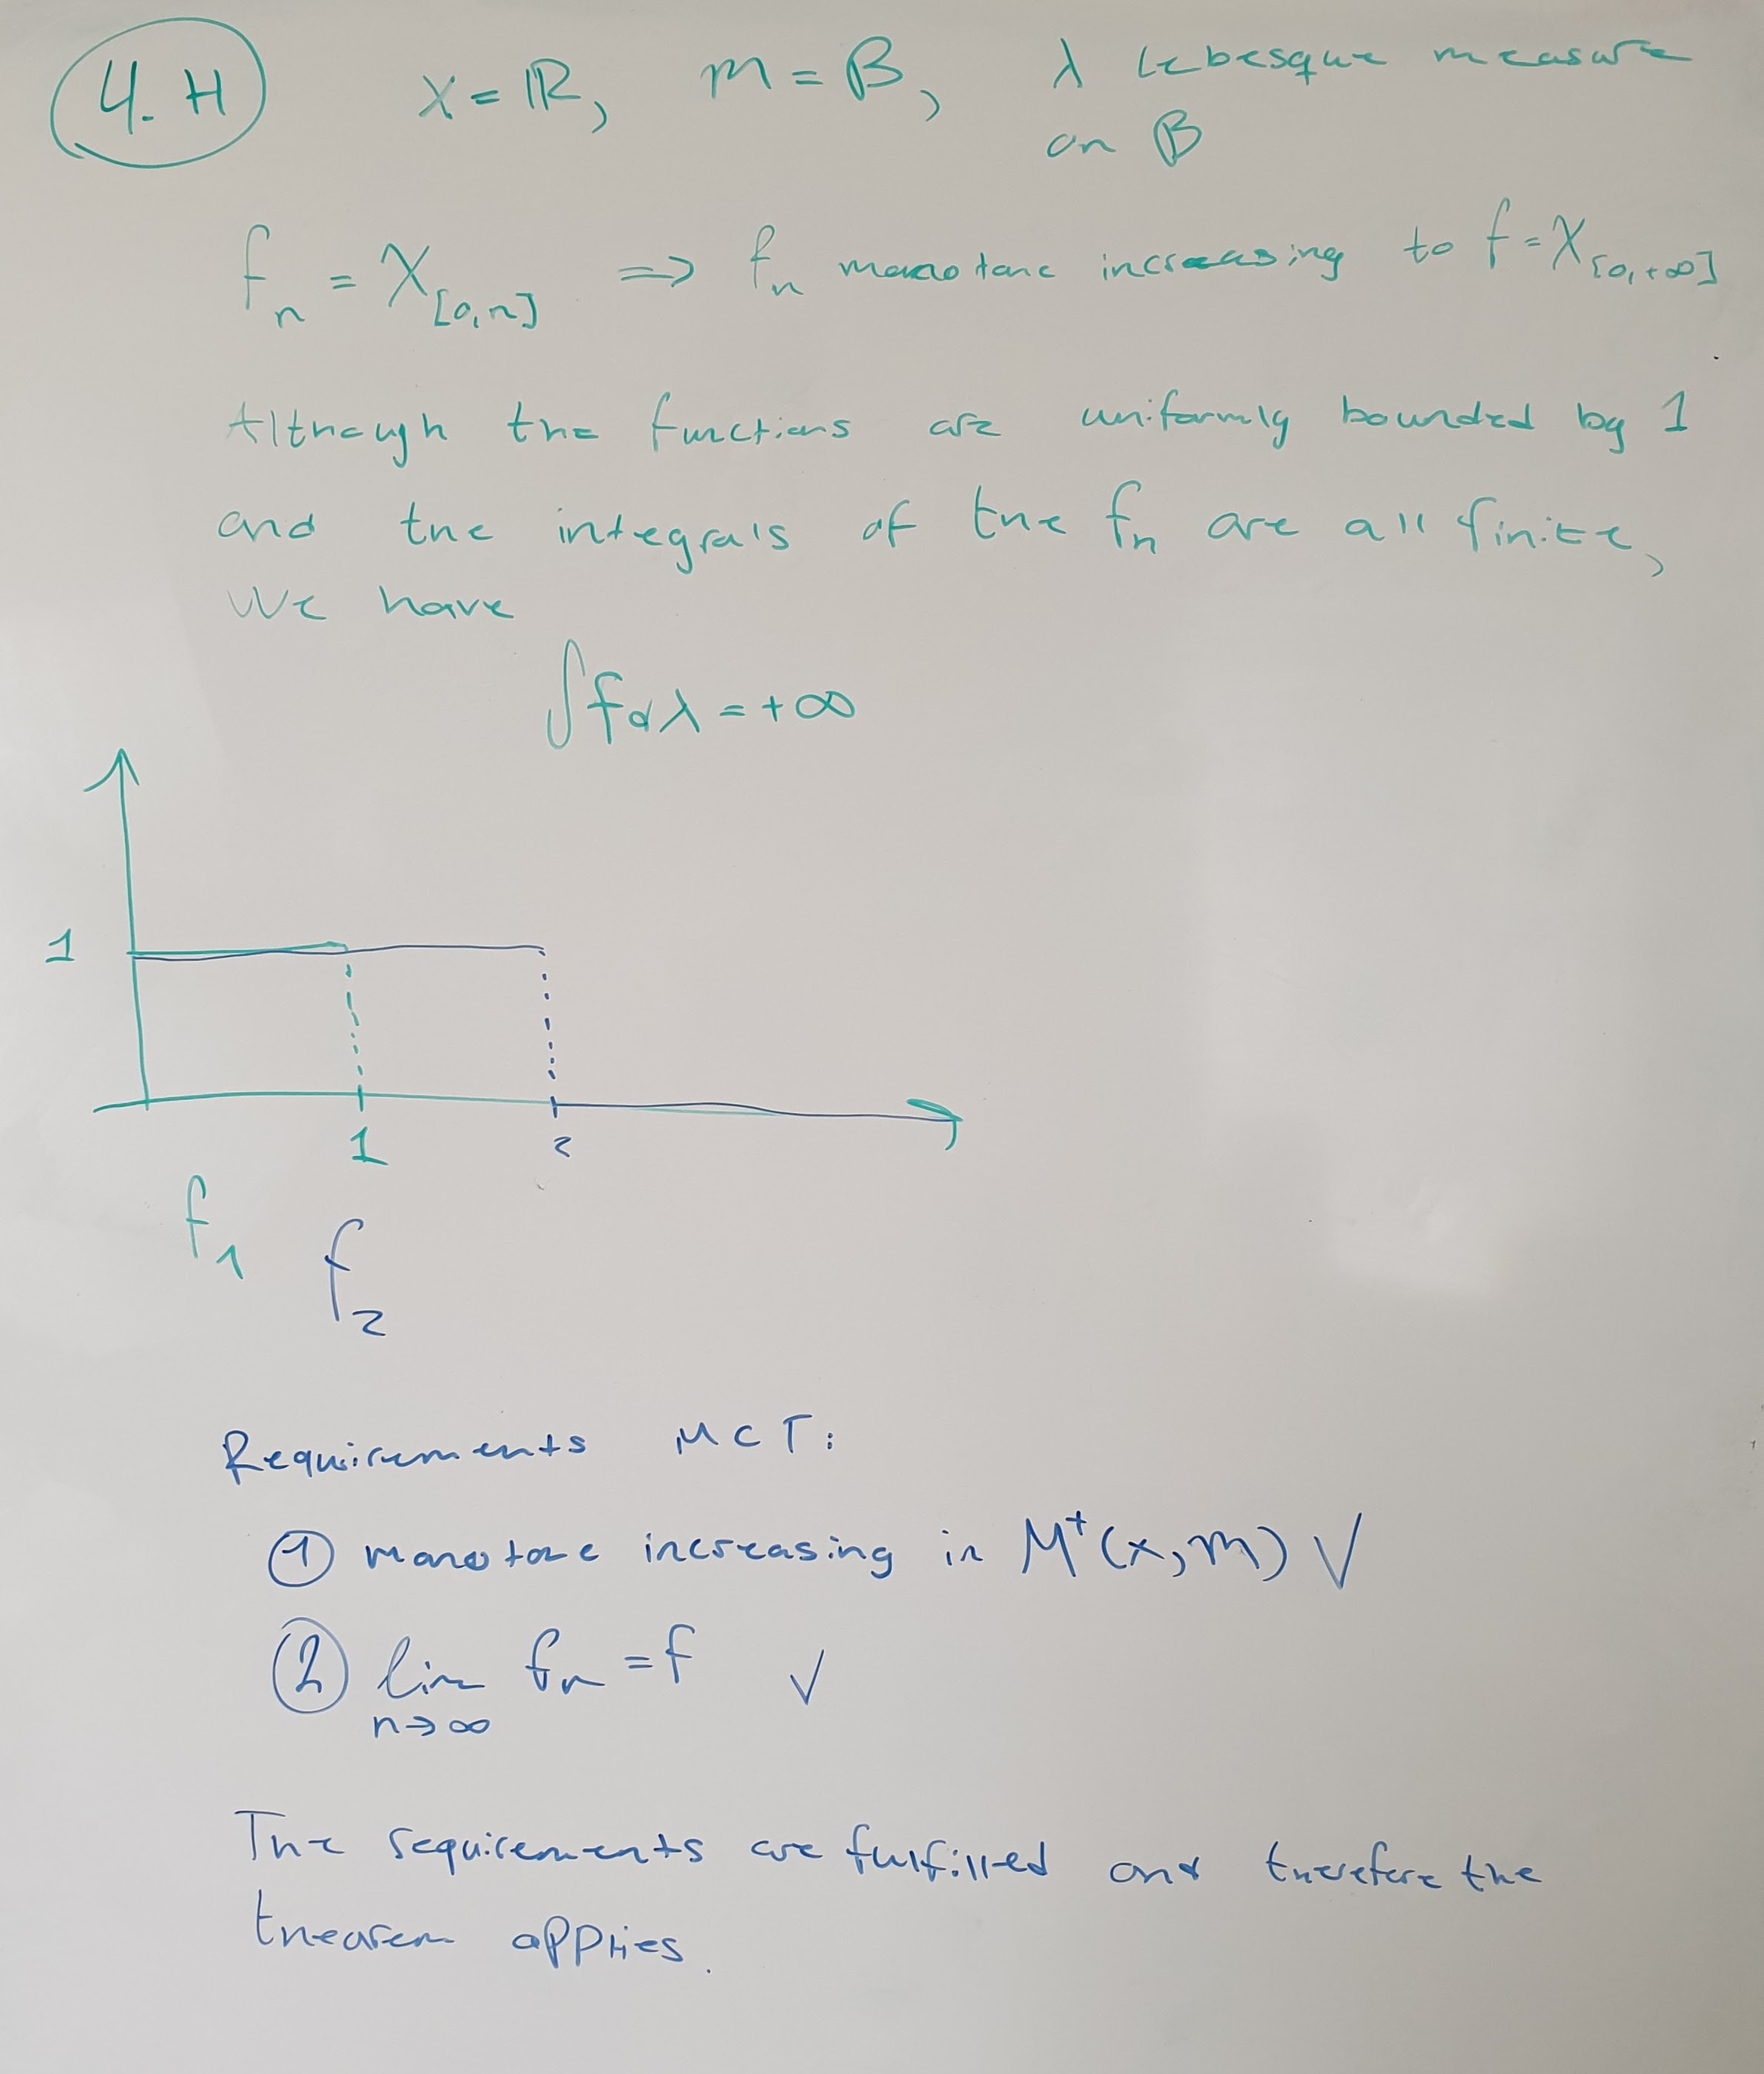 4.H X = ℝ, m = B, λ Lebesgue measure
on B
f_n = χ_[0,n] => f_n monotone increasing to f = χ_[0,+∞]
Although the functions are uniformly bounded by 1
and the integrals of the f_n are all finite,
We have
∫ f dλ = +∞
1
1 2
f_1
f_2
Requirements MCT:
① monotone increasing in M⁺(X,m) √
② lim f_n = f √
n→∞
The requirements are fulfilled and therefore the
theorem applies.